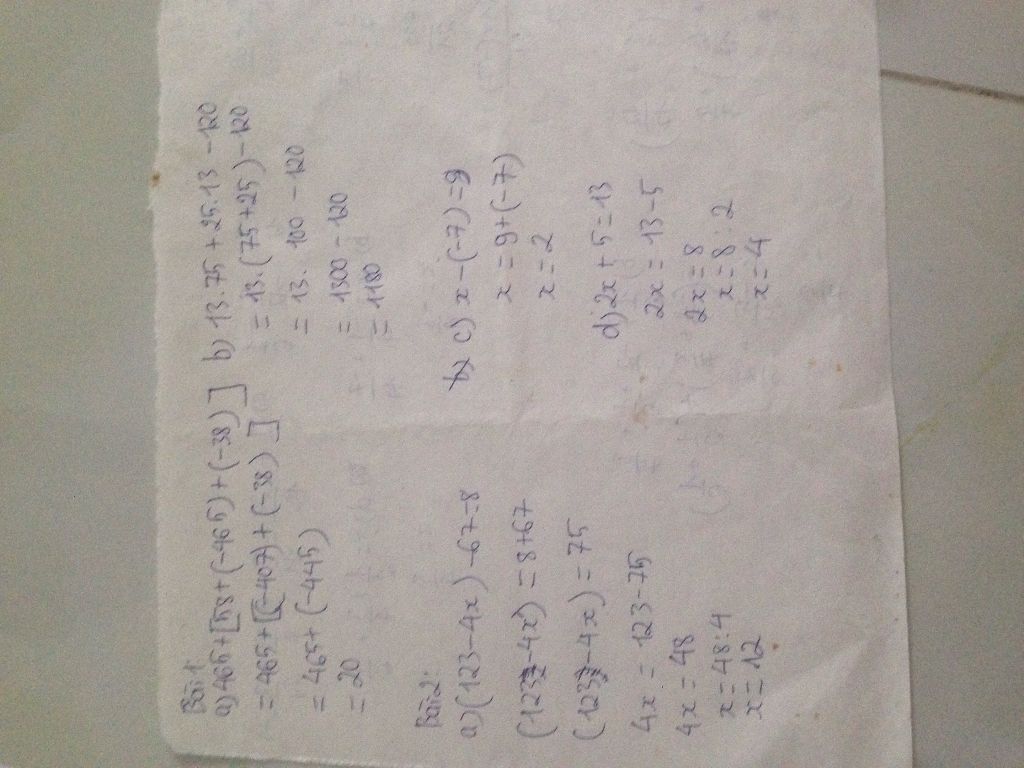 Bài 1:
a) 465+[58+(-465)+(-38)]
= 465+[(-407)+(-38)]
= 465+(-445)
= 20
b) 13.75+25.13-120
= 13.(75+25)-120
= 13. 100 -120
= 1300-120
= 1180
Bài 2:
a) (123-4x)-67=8
(123-4x)=8+67
(123-4x)=75
4x = 123-75
4x = 48
x = 48:4
x = 12
c) x-(-7)=9
x = 9+(-7)
x = 2
d) 2x+5=13
2x = 13-5
2x = 8
x = 8:2
x = 4